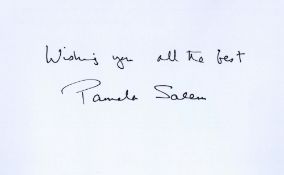 Wishing you all the best
Pamela Salem